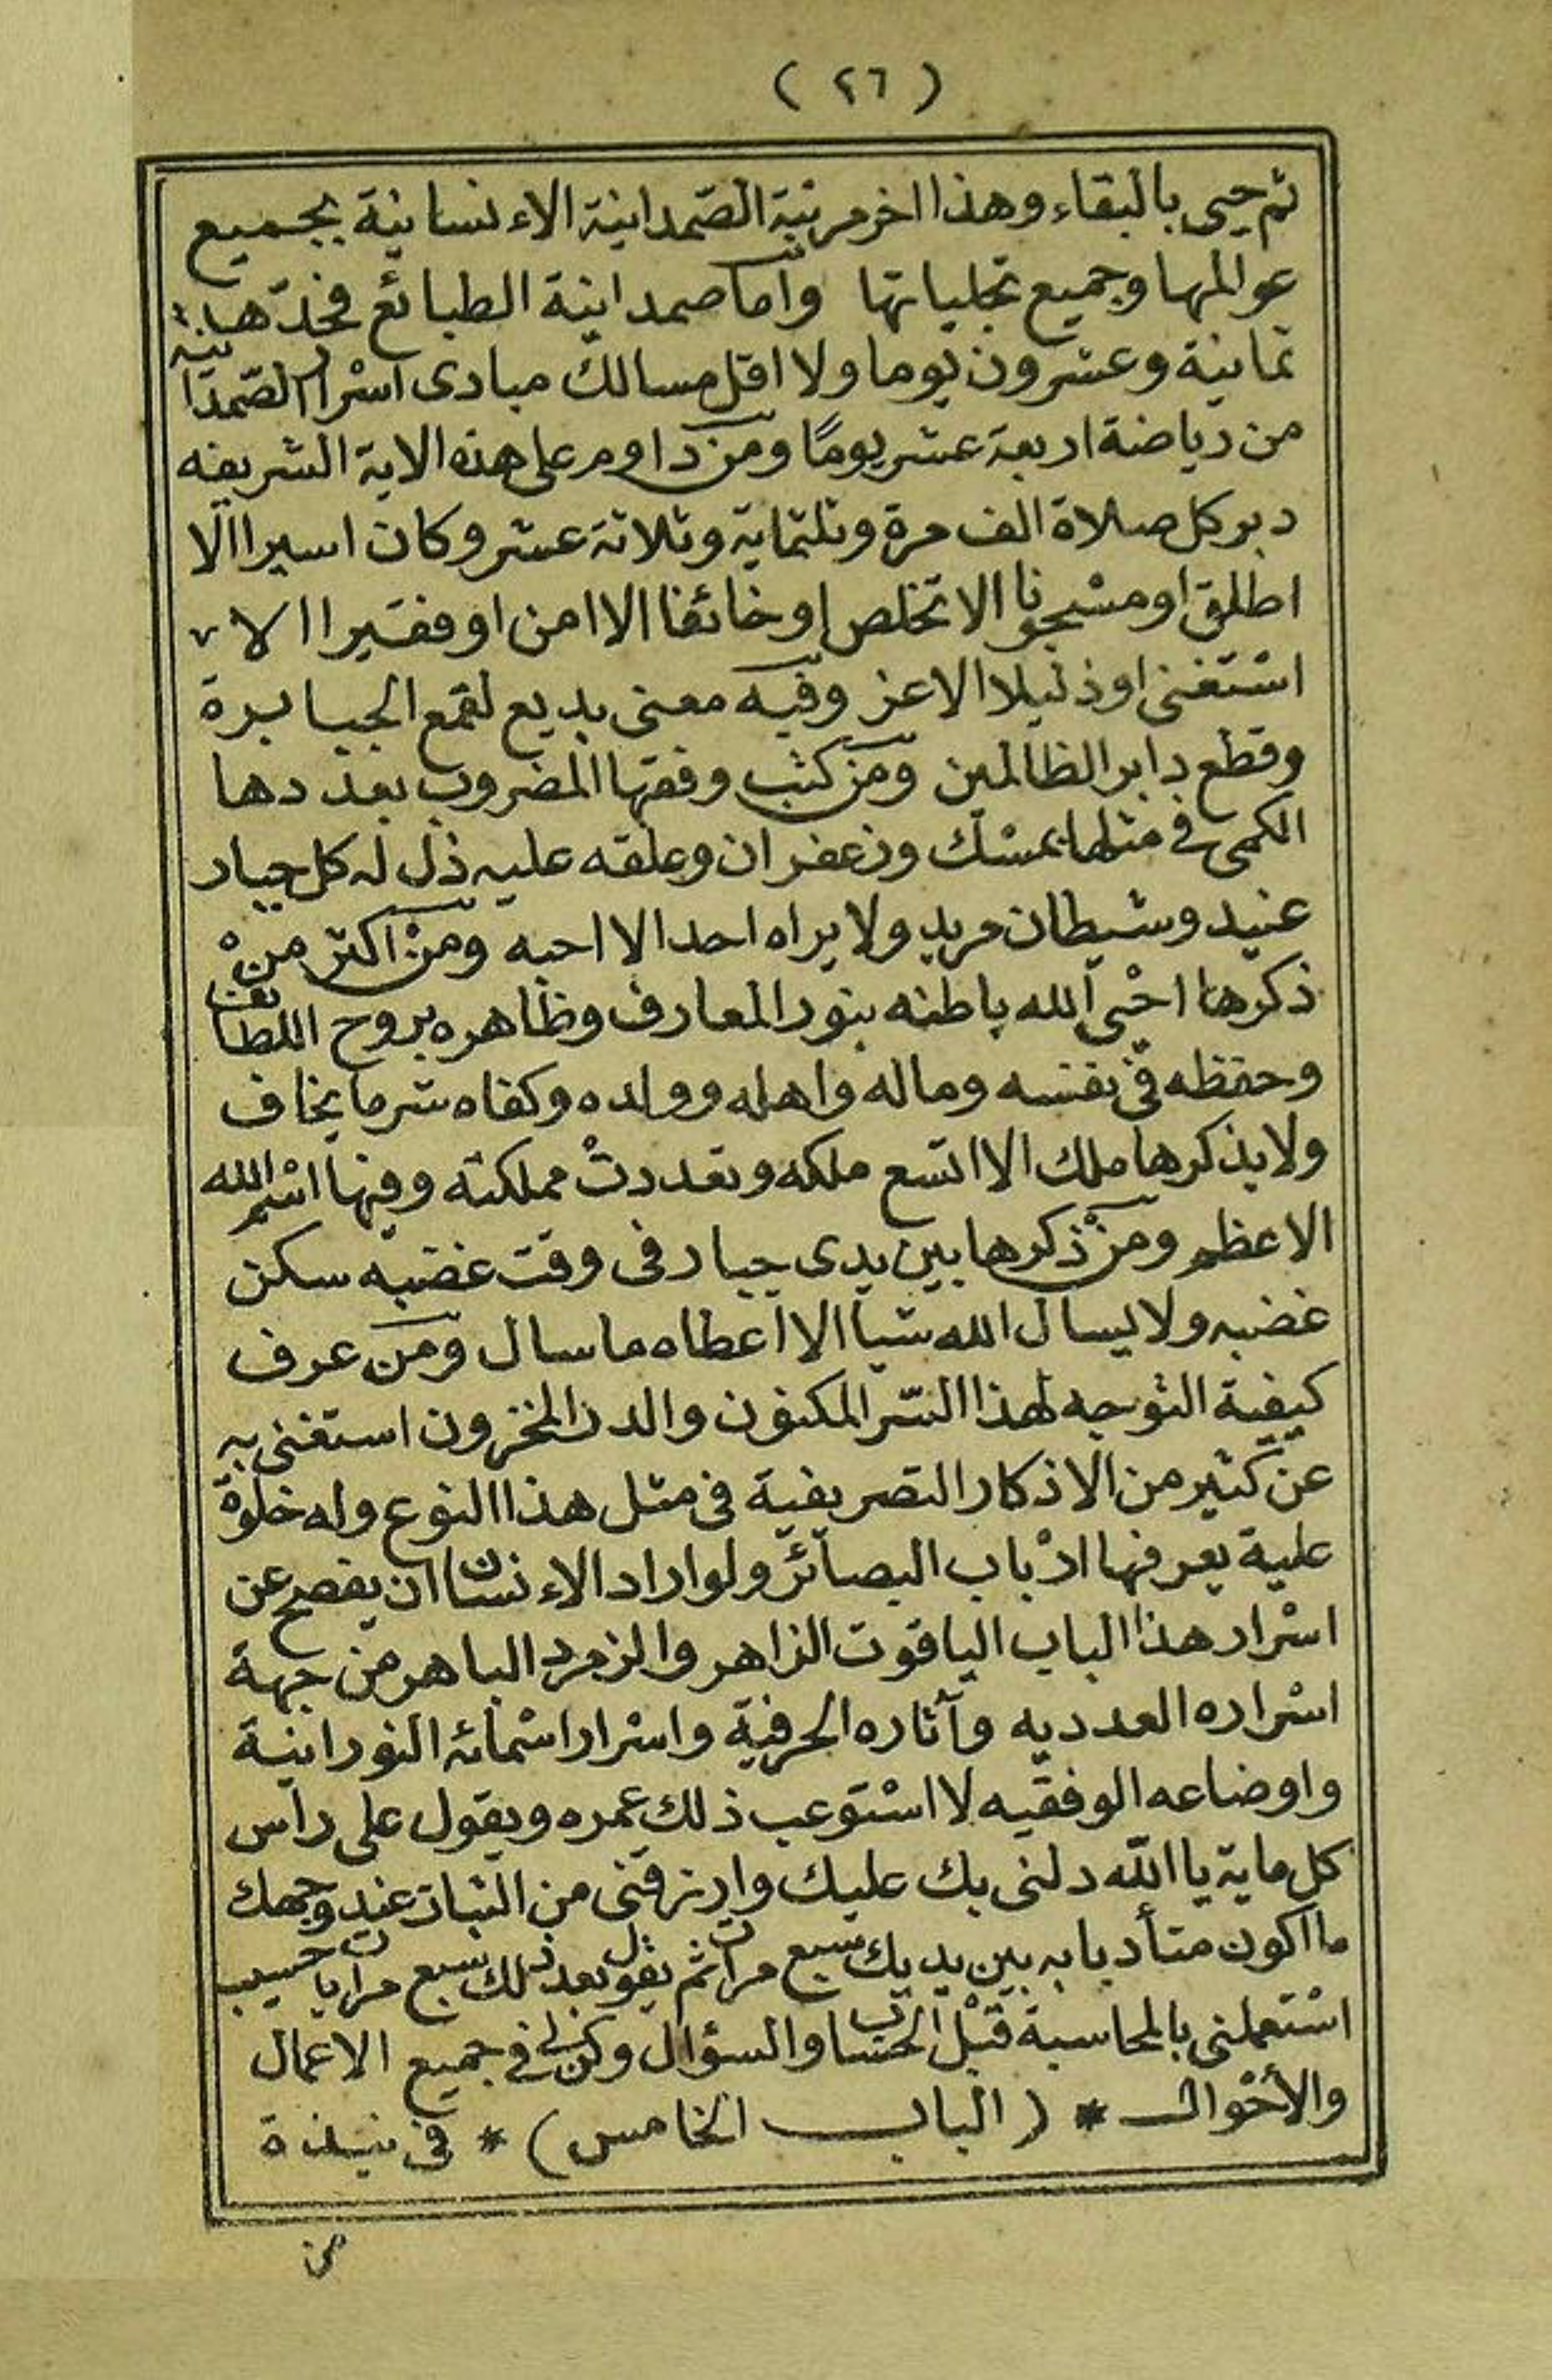 ( ٢٦ )
ثم حيى بالبقاء وهذا اخر مرتبة الصّمدانية الاءنسانية بجميع
عوالمها وجميع تجلياتها وأما صمدانية الطبائع فحدّها
ثمانية وعشرون يوما ولا اقل مسالك مبادى اسْرار الصّمدانية
من رياضة اربعة عشر يومًا ومن داوم على هذه الاية الشريفه
دبر كل صلاة الف مرة وثلثماية وثلاثة عشر وكان اسيرا الا
اطلق او مسْجونا الا تخلص او خائفا الا امن او فقيرا الا
اسْتغنى او ذليلا الا عز وفيه معنى بديع لقمع الجبابرة
وقطع دابر الظالمين ومن كتب وفقها المضروب بعددها
الكمى فى مثلها بمسْك وزعفران وعلقه عليه ذل له كل جبار
عنيد وشيطان مريد ولا يراه احد الا احبه ومنْ اكثر منْ
ذكرها احْيى الله باطنه بنور المعارف وظاهره بروح اللطائف
وحفظه فى نفسه وماله واهله وولده وكفاه شر ما يخاف
ولا يذكرها ملك الا اتسع ملكه وتعددتْ مملكته وفيها اسْم الله
الاعظم ومنْ ذكرها بين يدى جبار فى وقت غضبه سكن
غضبه ولا يسال الله شيا الا اعطاه ما سال ومن عرف
كيفية التوجه لهذا السّر المكنون والدر المخزون استغنى به
عن كثير من الاذكار التصريفية فى مثل هذا النوع وله خلوة
علية يعرفها ارْباب البصائر ولو اراد الاءنسان ان يفصح عن
اسْرار هذا الباب الياقوت الزاهر والزمرد الباهر من جهة
اسْراره العدديه وآثاره الحرفية واسْرار اسْمائه النورانية
واوضاعه الوفقيه لا اسْتوعب ذلك عمره ويقول على راس
كل ماية يا الله دلنى بك عليك وارزقنى من الثبات عند وجهك
ما اكون متأدبا به بين يديك سبع مرات ثم يقول بعد ذلك سبع مرات يا حسيب
اسْتعملنى بالمحاسبة قبْل الحساب والسؤال وكن لى فى جميع الاعمال
والأحْوال * ( الباب الخامس ) * فى نبذة
من